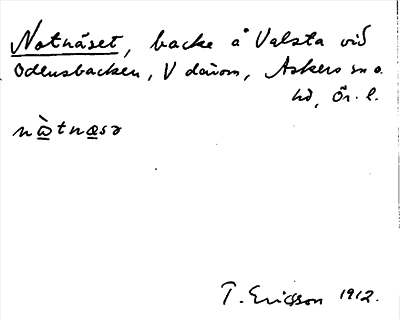 Notnäset, backe å Valsta vid
Odensbacken, V därom, Askers sn o.
hd, Ör. l.
nòtnæsə
T. Ericsson 1912.